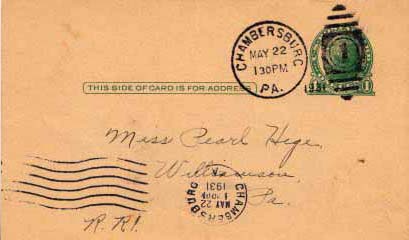 CHAMBERSBURG
MAY 22
1 30 PM
PA.
1931
THIS SIDE OF CARD IS FOR ADDRESS
1
Miss Pearl Hege,
Williamson,
Pa.
R. R. 1.
CHAMBERSBURG
MAY 22
1931